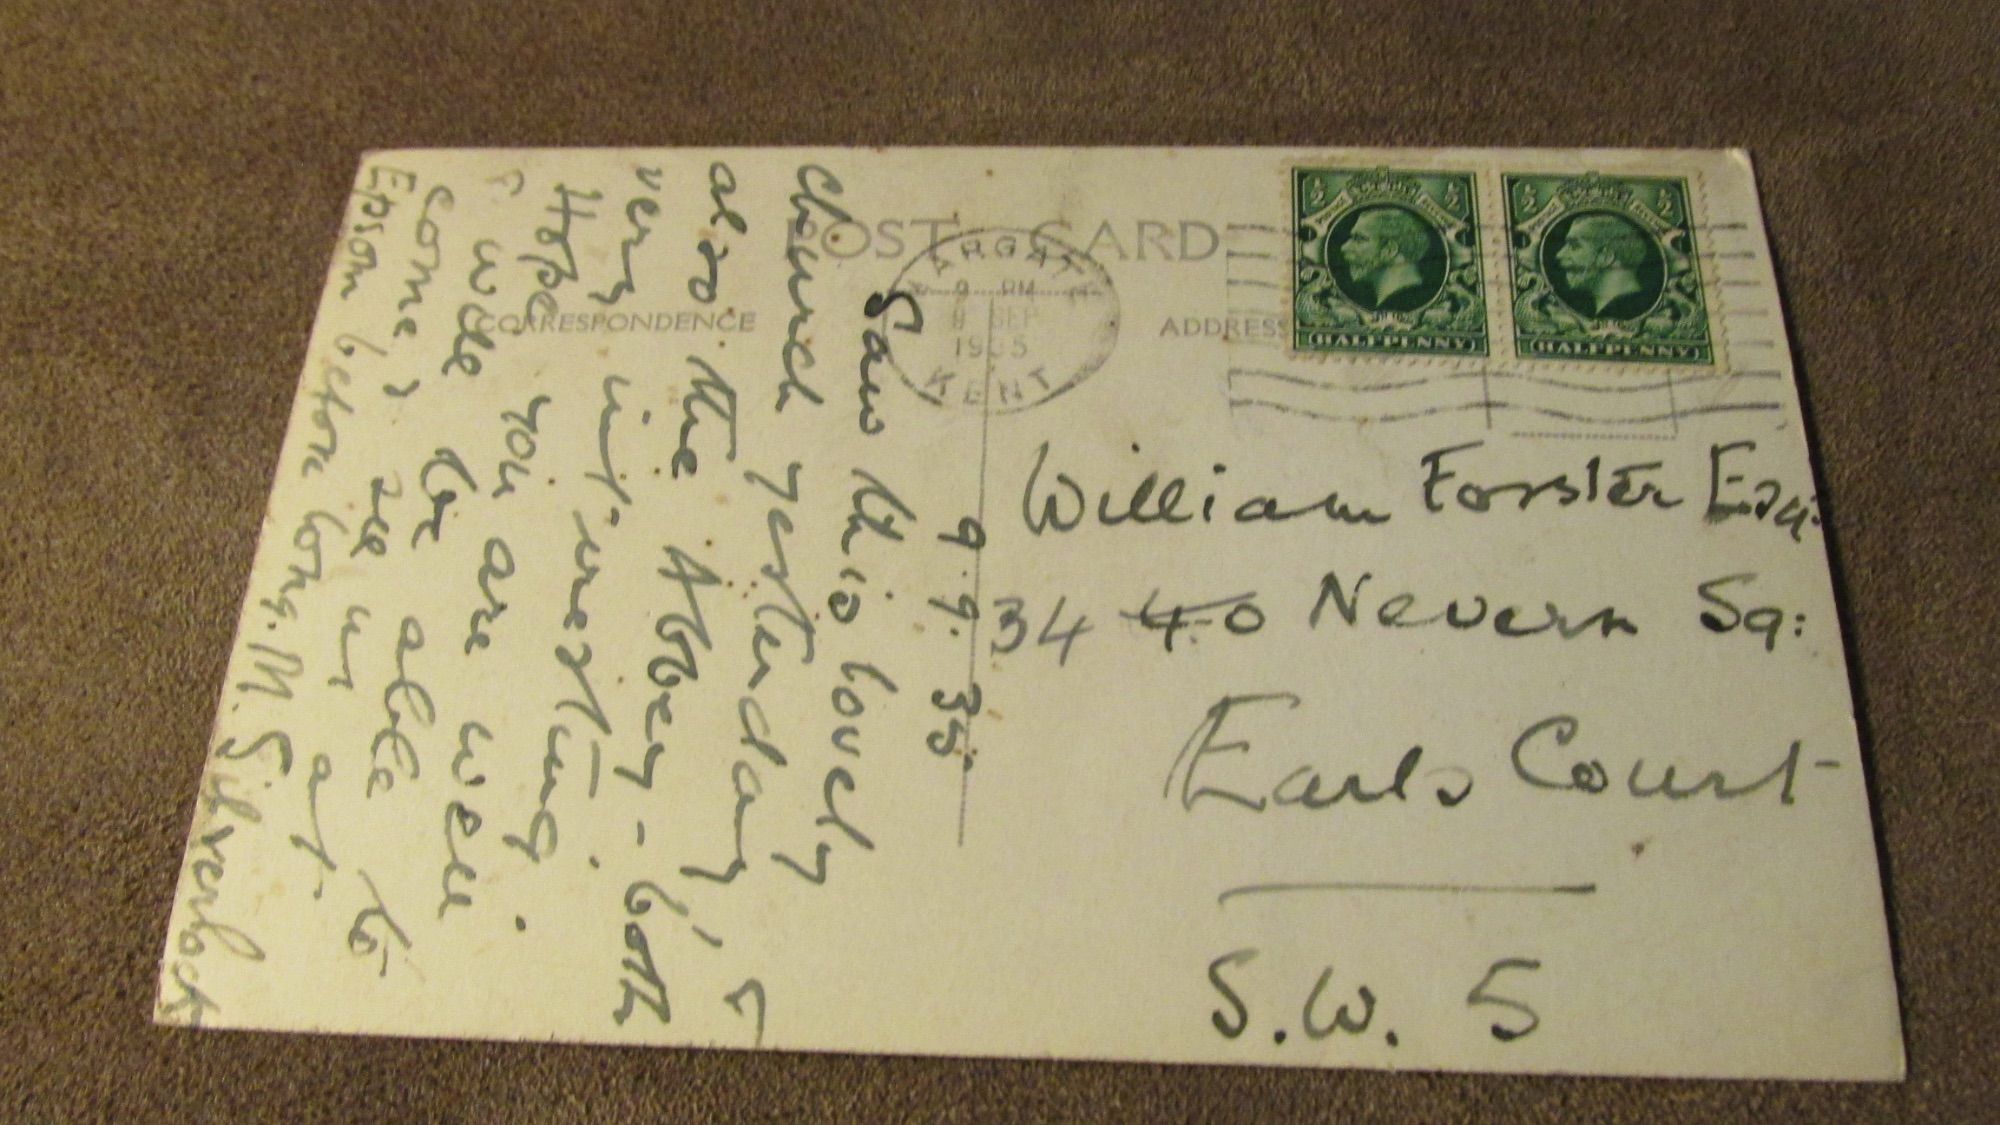 POST CARD
CORRESPONDENCE
ADDRESS
MARGATE
9 PM
9 SEP
1935
KENT
½ ½
POSTAGE REVENUE
HALFPENNY
½ ½
POSTAGE REVENUE
HALFPENNY
9.9.35.
Saw this lovely
church yesterday &
also the Abbey - both
very interesting.
Hope you are well
& wde be able to
come & see us at
Epsom before long. M. Silverlock
William Forster Esq:
34 40 Nevern Sq:
Earls Court
S.W. 5